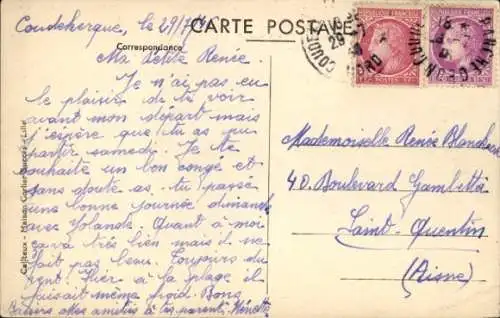 Coudekerque, le 29/7/46
CARTE POSTALE
Correspondance
Ma petite Renée
Je n'ai pas eu
le plaisir de te voir
avant mon départ mais
j'espère que tu as pu
partir samedi. Je te
souhaite un bon congé et
sans doute as-tu passé
une bonne journée dimanche
avec Yolande. Quant à moi
ça va très bien mais il ne
fait pas beau. Toujours du
vent. Hier à la plage il
faisait même froid. Bons
baisers mes amitiés à tes parents,
Mademoiselle Renée
40. Boulevard Gambetta
Saint-Quentin
(Aisne)
Cailteux - Maison
Lille